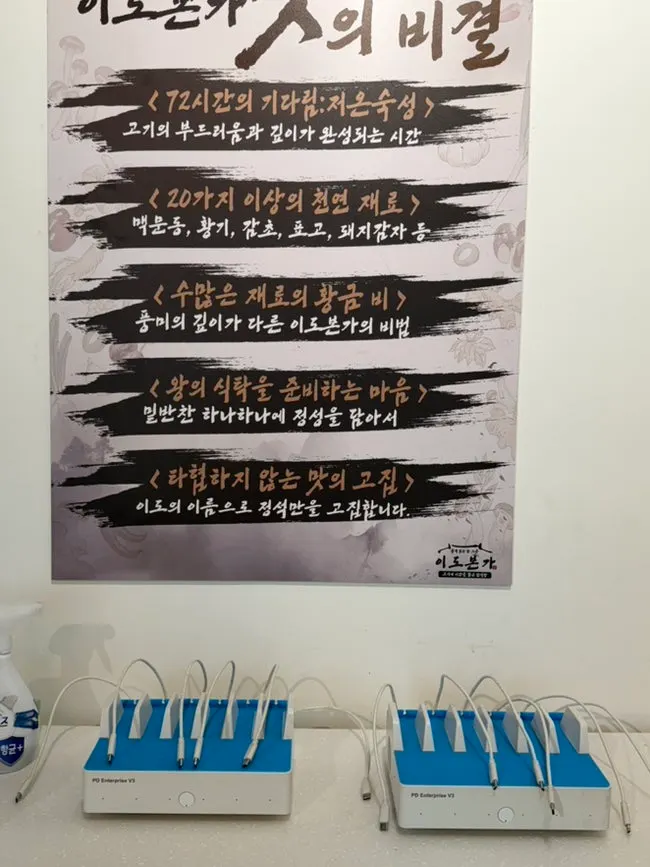 이도본가 맛의 비결
< 72시간의 기다림:저온숙성 >
고기의 부드러움과 깊이가 완성되는 시간
< 20가지 이상의 천연 재료 >
맥문동, 황기, 감초, 표고, 돼지감자 등
< 수많은 재료의 황금 비 >
풍미의 깊이가 다른 이도본가의 비법
< 왕의 식탁을 준비하는 마음 >
밑반찬 하나하나에 정성을 담아서
< 타협하지 않는 맛의 고집 >
이도의 이름으로 정석만을 고집합니다.
이도본가
항균+
PD Enterprise V3
PD Enterprise V3